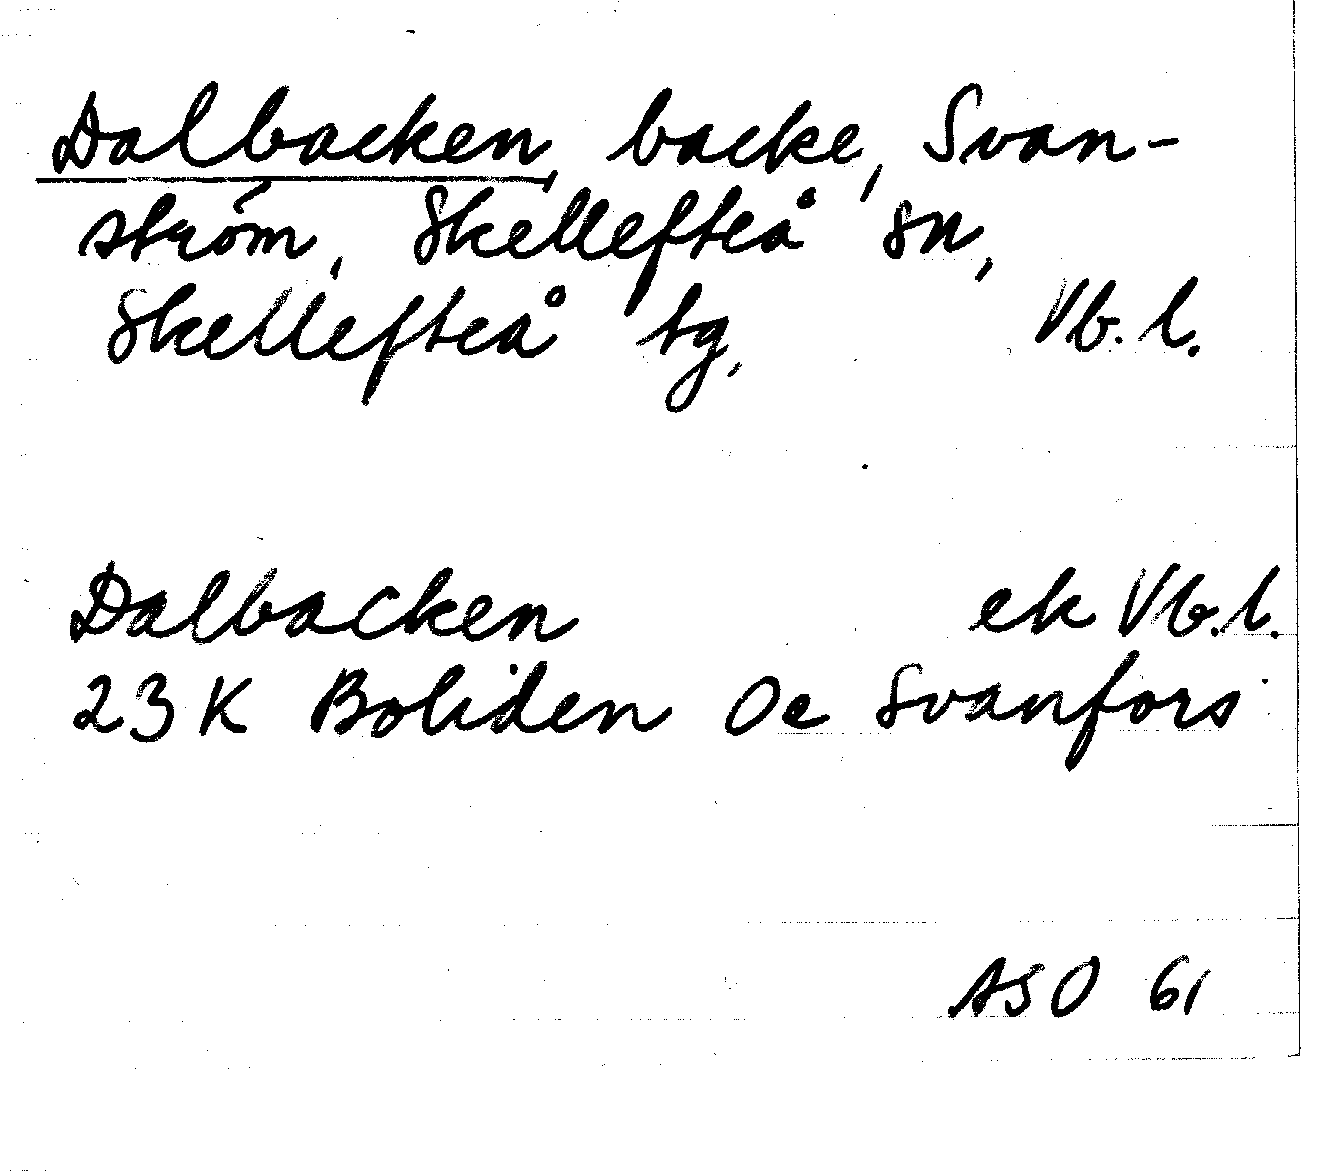 Dalbacken, backe, Svan-
ström, Skellefteå sn,
Skellefteå tg, Vb. l.
Dalbacken ek Vb. l.
23 K Boliden Oe Svanfors
ASO 61